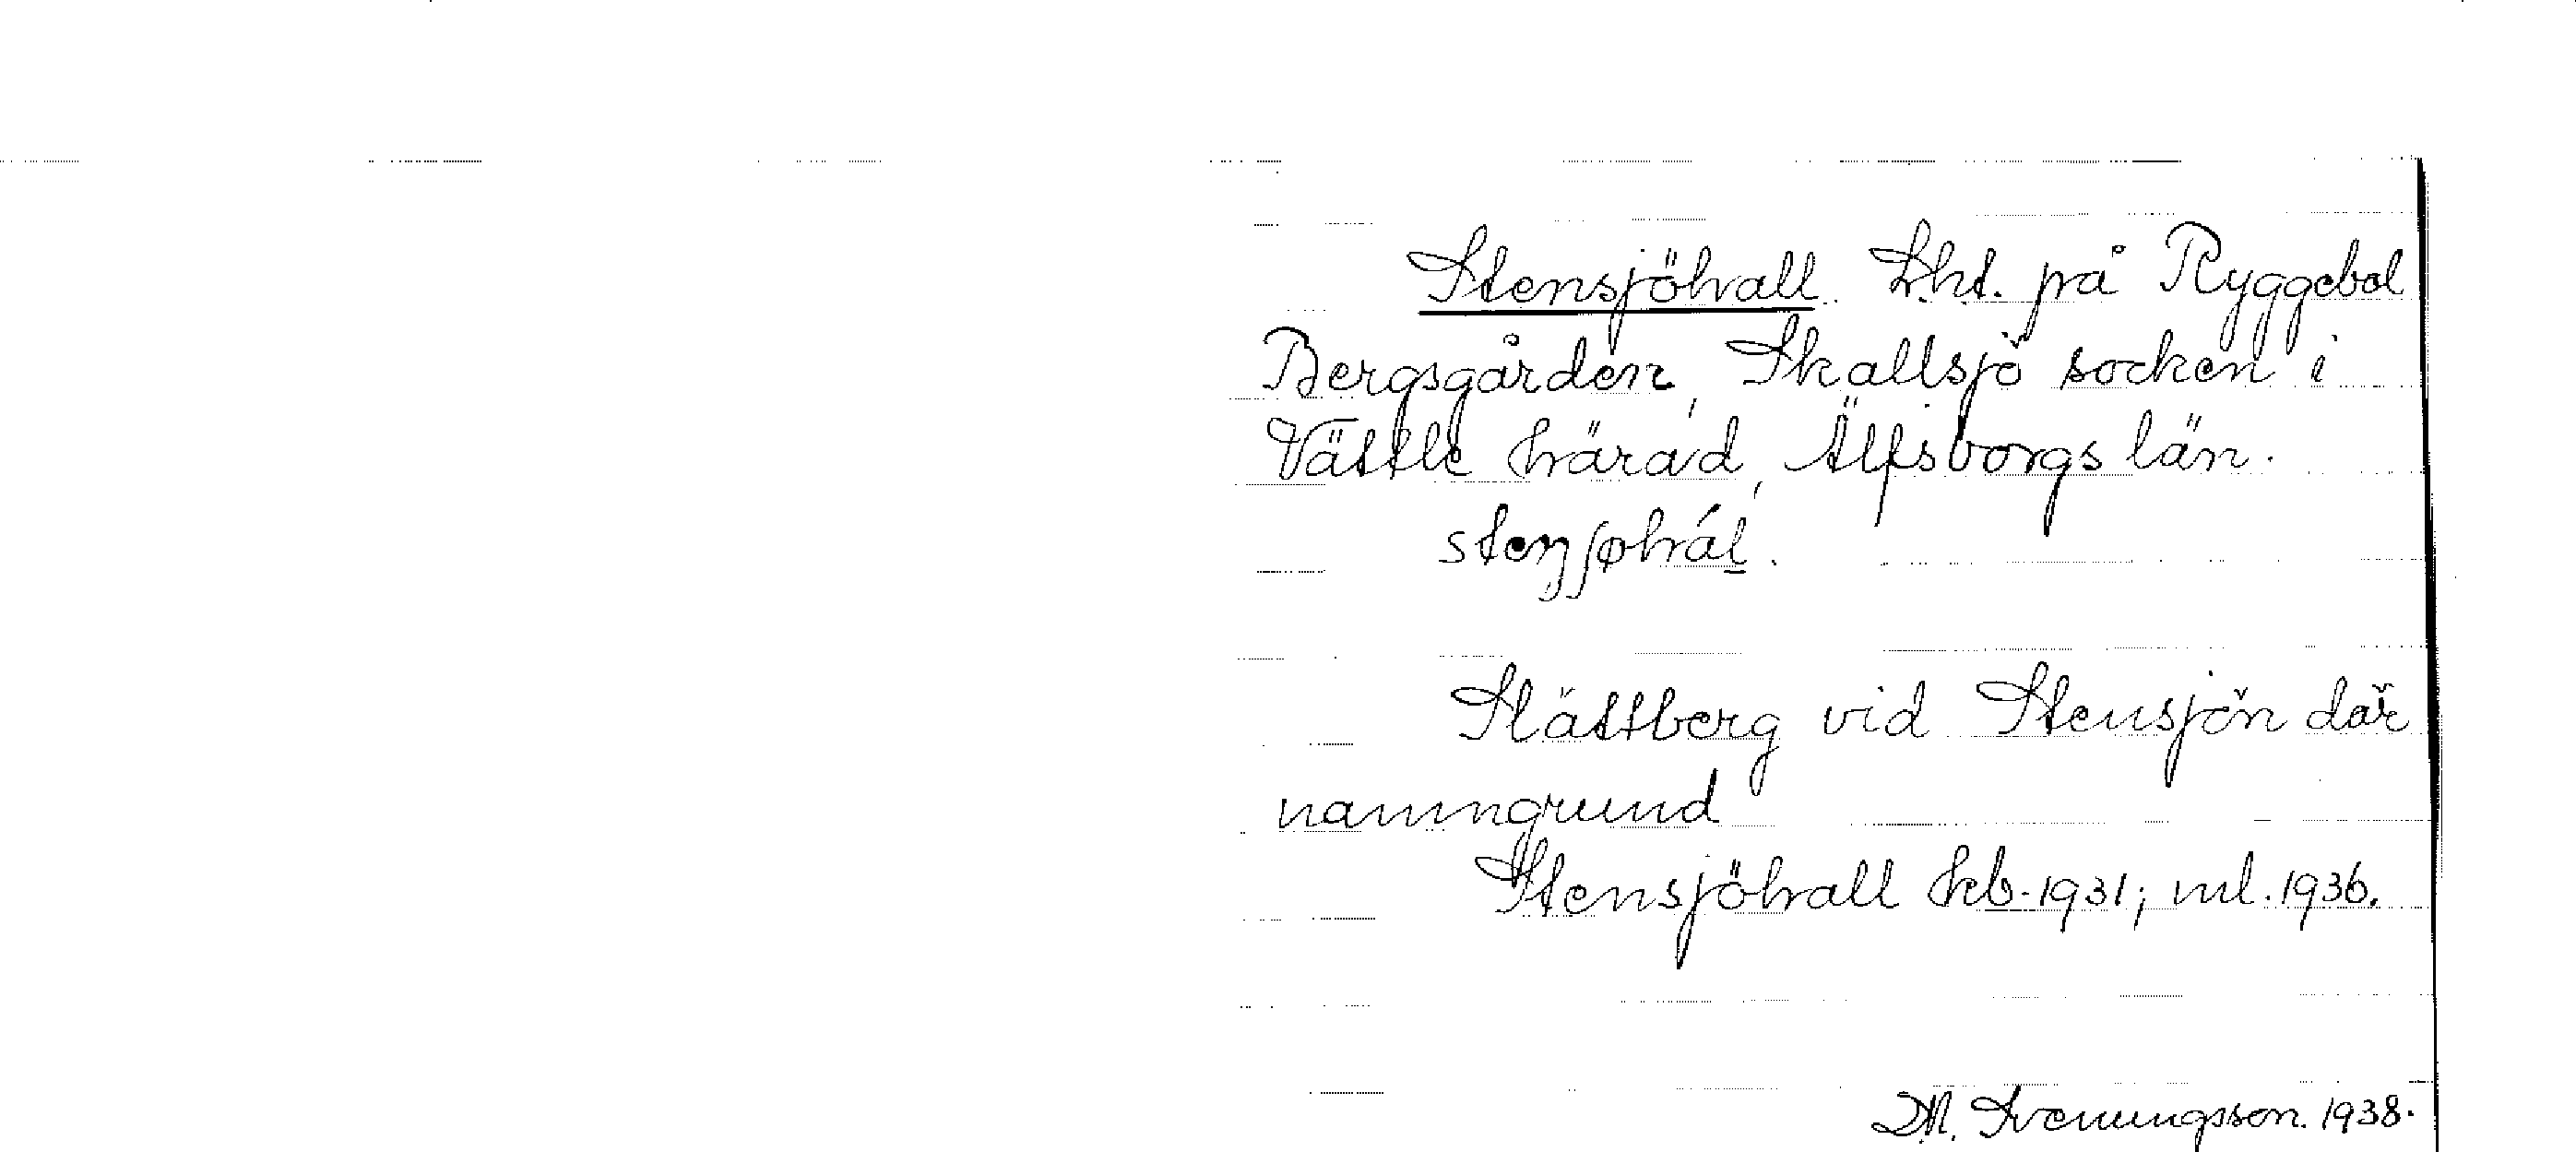 Stensjöhall Lht. på Ryggebol
Bergsgården, Skallsjö socken i
Vättle härad, Älfsborgs län.
Slättberg vid Stensjön där
namngrund
Stensjöhall kb. 1931; ml. 1936.
D.N. Svenungsson. 1938.